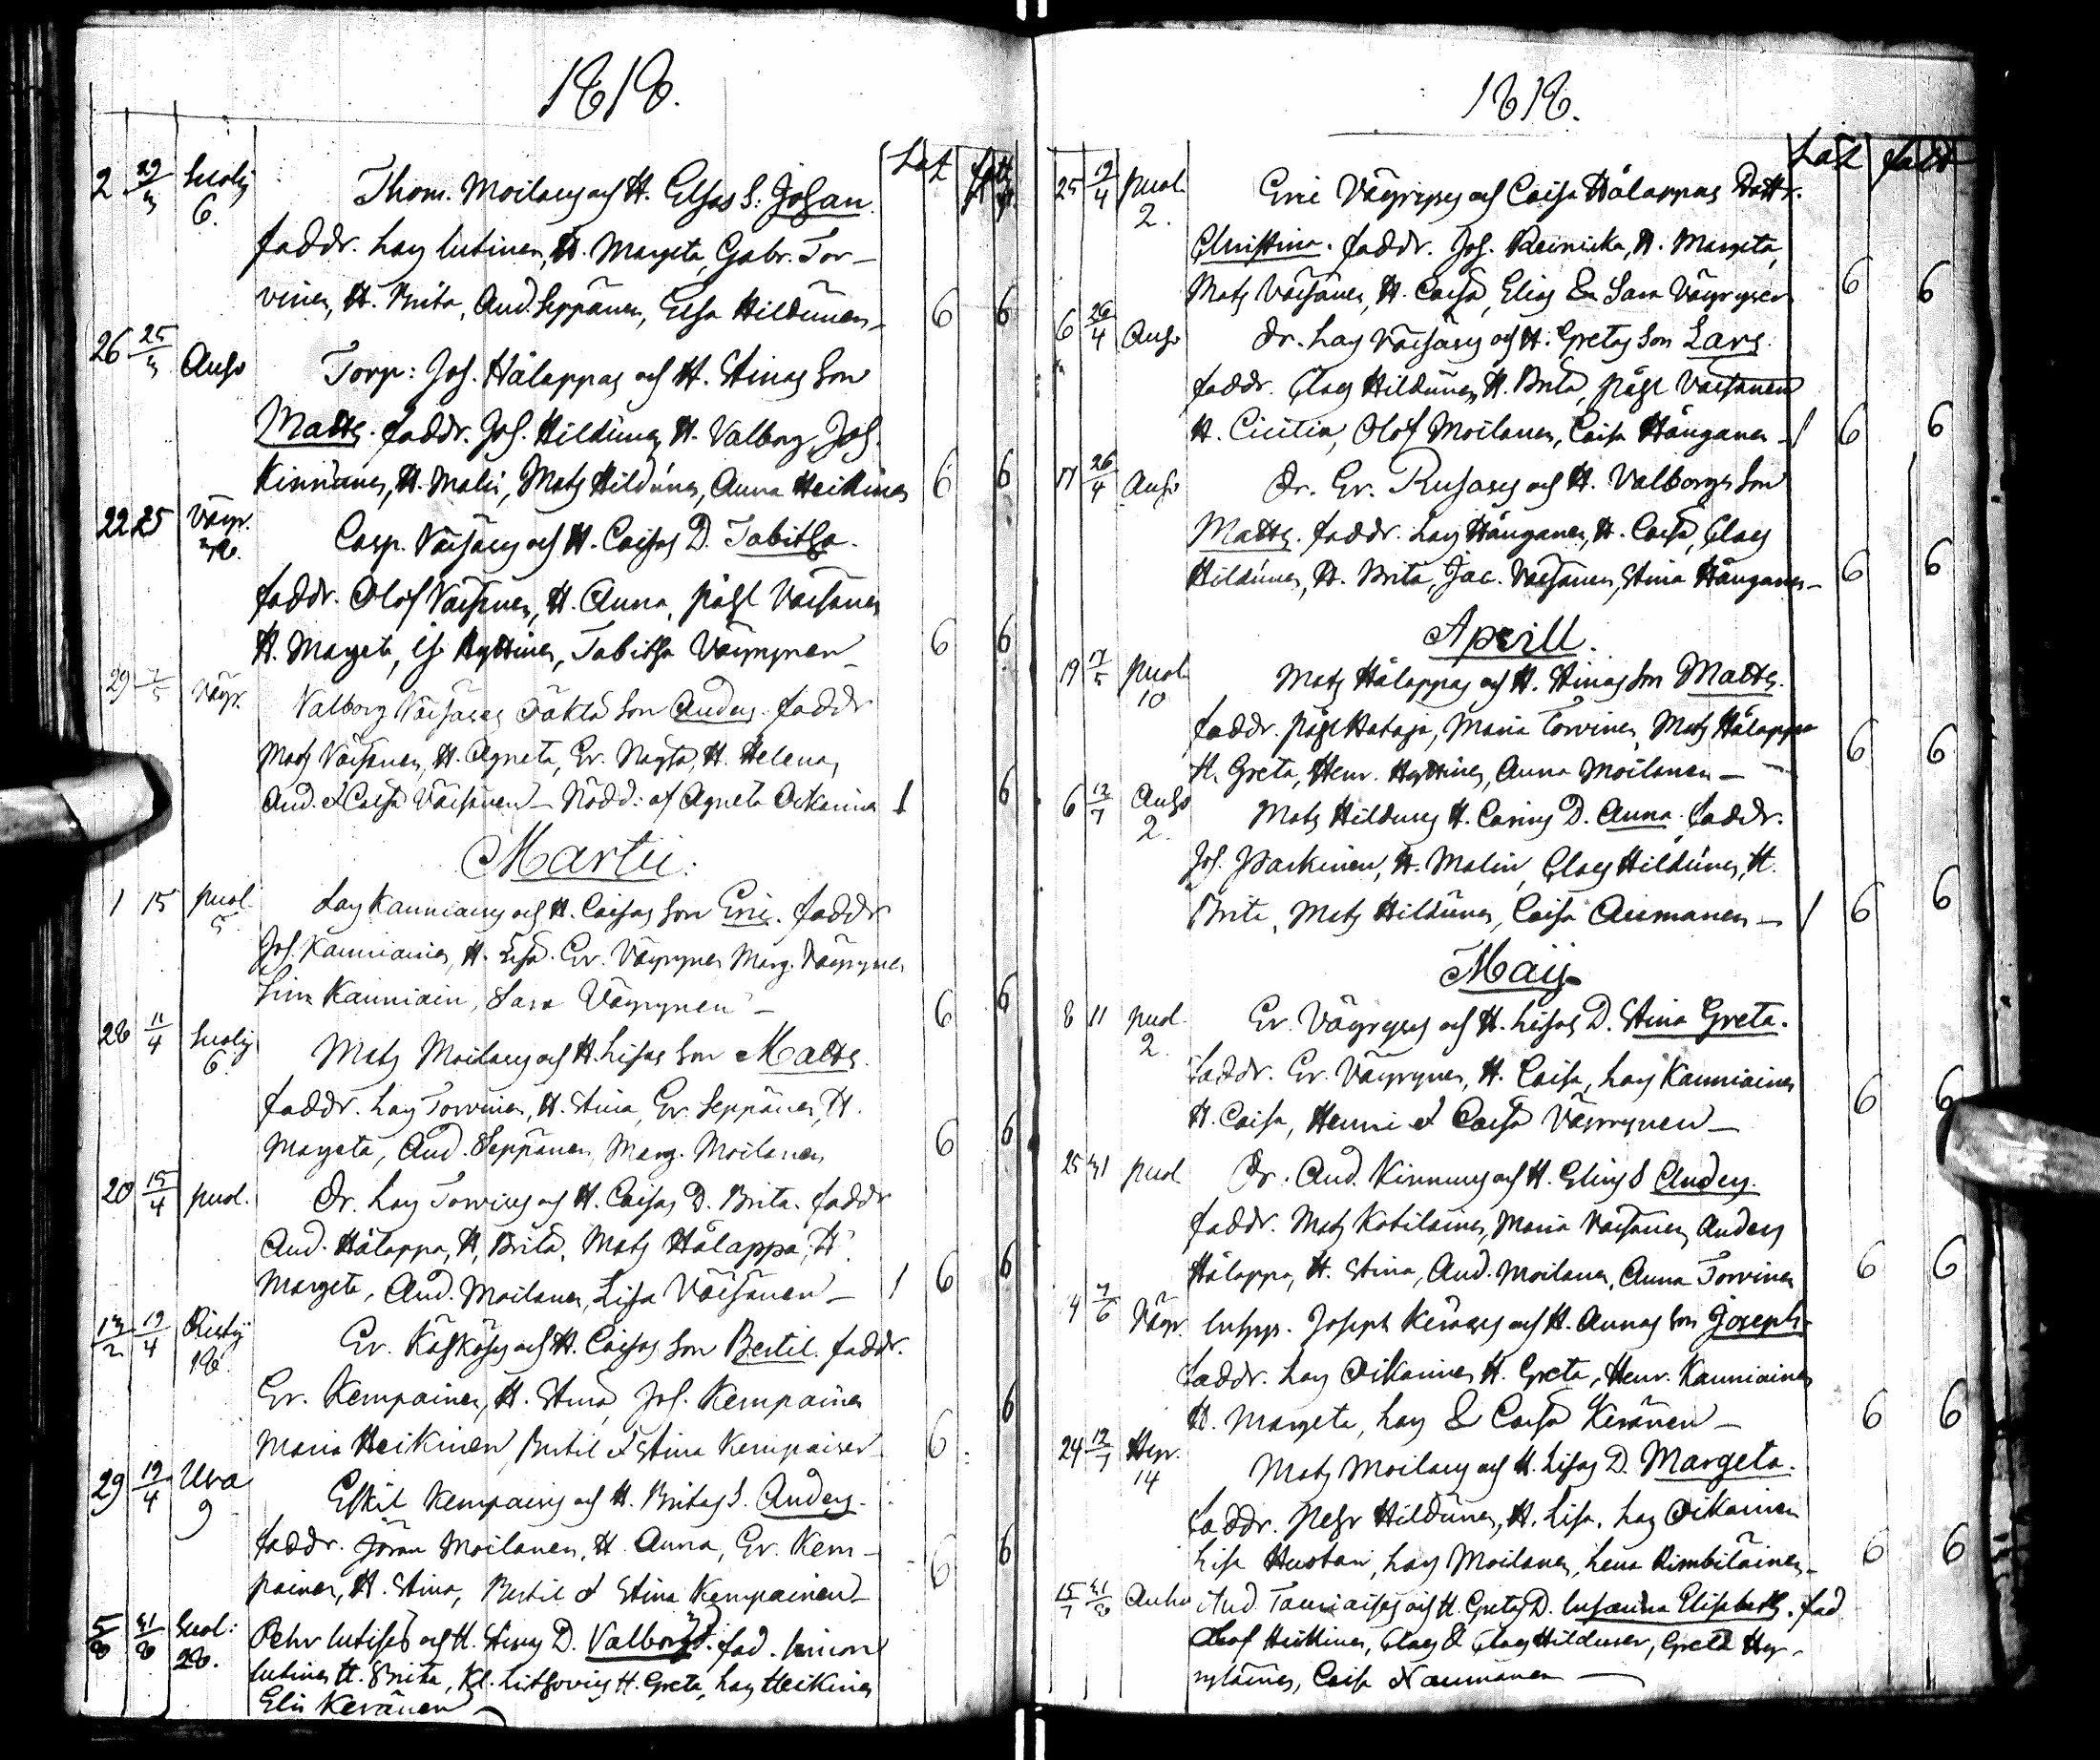 1818.
Lat fatt
2 29/3 Suolij Thom. Moilaes och H. Elsas S: Johan.
6.
faddr. Lars Lutinen, H. Margeta, Gabr. Tor-
vinen, H. Brita, And. Seppänen, Elsa Hildunen 6 6
26 25/3 Anho Torp: Joh. Hålappas och H. Stinas Son
Matts. faddr. Joh. Hildunen H. Valborg, Joh.
Kinnunen, H. Malin, Mats Hildunen, Anna Heikinen 6 6
22 25 Väyr. Casp. Väisäens och H. Caisas D. Tabitha.
faddr. Olof Väisänen, H. Anna, Påhl Väisänen
H. Margeta, Hyttinen, Tabitha Väyrynen 6 6
29 Väyr. Valborg Väisäes oäkta Son Anders. faddr
Mats Väisänen, H. Agneta, Er. H. Helena,
And. et Caisa Väisänen - Nödd: af Agneta Oikarina 1 6
Martii.
1 15 Puol. Lars Kauniaens och H. Caisas Son Eric. faddr
5
Joh. Kauniainen, H. Lisa. Er. Väyrynen Marg. Väyrynen
Kauniain, Sara Väyrynen - 6 6
28 11/4 Suolij Mats Moilaes och H. Lisas Son Matts.
6.
faddr. Lars Torvinen, H. Stina, Er. Seppänen, H.
Margeta, And. Seppänen, Marg. Moilanen 6 6
20 15/4 Puol. Dr. Lars Torvies och H. Caisas D. Brita. faddr
And. Hålappa, H. Brita, Mats Hålappa, H.
Margeta, And. Moilanen, Lisa Väisänen - 1 6 6
13/2 19/4 Ristij Er. Käsköes och H. Caisas Son Bertil. faddr.
18.
Er. Kempainen, H. Stina, Joh. Kempainen
Maria Heikinen, Bertil et Stina Kempainen 6 6
29 19/4 Uva Eskil Kempaies och H. Britas S. Anders.
9
faddr. Jöran Moilanen, H. Anna, Er. Kem-
painen, H. Stina, Bertil et Stina Kempainen 6 6
5/8 31/8 Suol: Pehr och H. Stinas D. Valborg. fad. Simon
28.
Lutinen H. Brita, Kl. H. Greta, Lars Heikinen
Elin Keränen
1818.
Lat fatt
25 19/4 Puol. Eric Väyryes och Caisa Hålappas Dottr.
2.
Christina. faddr. Joh. Reinicka, H. Margeta,
Mats Väisänen, H. Caisa, Elias & Sara Väyrynen 6 6
6 26/4 Anho Dr. Lars Väisäes och H. Gretas Son Lars.
faddr. Claes Hildunen H. Brita, Påhl Väisänen
H. Cicilia, Olof Moilanen, Caisa Hänganen - 1 6 6
17 26/4 Anho Dr. Er. Rusaes och H. Valborgs Son
Matts. faddr. Lars Hänganen, H. Caisa, Claes
Hildunen, H. Brita, Jac. Väisänen, Stina Hänganen - 6 6
Aprill.
19 17/5 Puol. Mats Hålappas och H. Stinas Son Matts.
10
faddr. Påhl Hataja, Maria Torvinen, Mats Hålappa
H. Greta, Henr. Hyttinen, Anna Moilanen - 6 6
6 12/7 Anho Mats Hildues H. Carins D. Anna. faddr.
2.
Joh. Parkinen, H. Malin, Claes Hildunen, H.
Brita, Mats Hildunen, Caisa Aumanen - 1 6 6
Maij
8 11 Puol. Er. Väyryes och H. Lisas D. Stina Greta.
2.
faddr. Er. Väyrynen, H. Caisa, Lars Kauniainen
H. Caisa, Henric et Caisa Väyrynen - 6 6
25 31 Puol Dr. And. Kinnues och H. Elins S Anders.
faddr. Mats Kotilainen, Maria Väisänen, Anders
Hålappa, H. Stina, And. Moilanen, Anna Torvinen 6 6
4 7/6 Väyr. Inhys. Joseph Keräes och H. Annas Son Joseph.
faddr. Lars Oikarinen H. Greta, Henr. Kauniainen
H. Margeta, Lars & Caisa Keränen - 6 6
24 12/7 Hyr. Mats Moilaes och H. Lisas D. Margeta.
14
faddr. Pehr Hildunen, H. Lisa, Lars Oikarinen
Lisa Huotari, Lars Moilanen, Lena Rimbiläinen - 6 6
15/7 31/8 Anho And. Tauriaises och H. Gretas D. Susanna Elisabeth. fad
Olof Heikkinen, Claes & Claes Hildunen, Greta Hyr-
nyläinen, Caisa Naumanen -